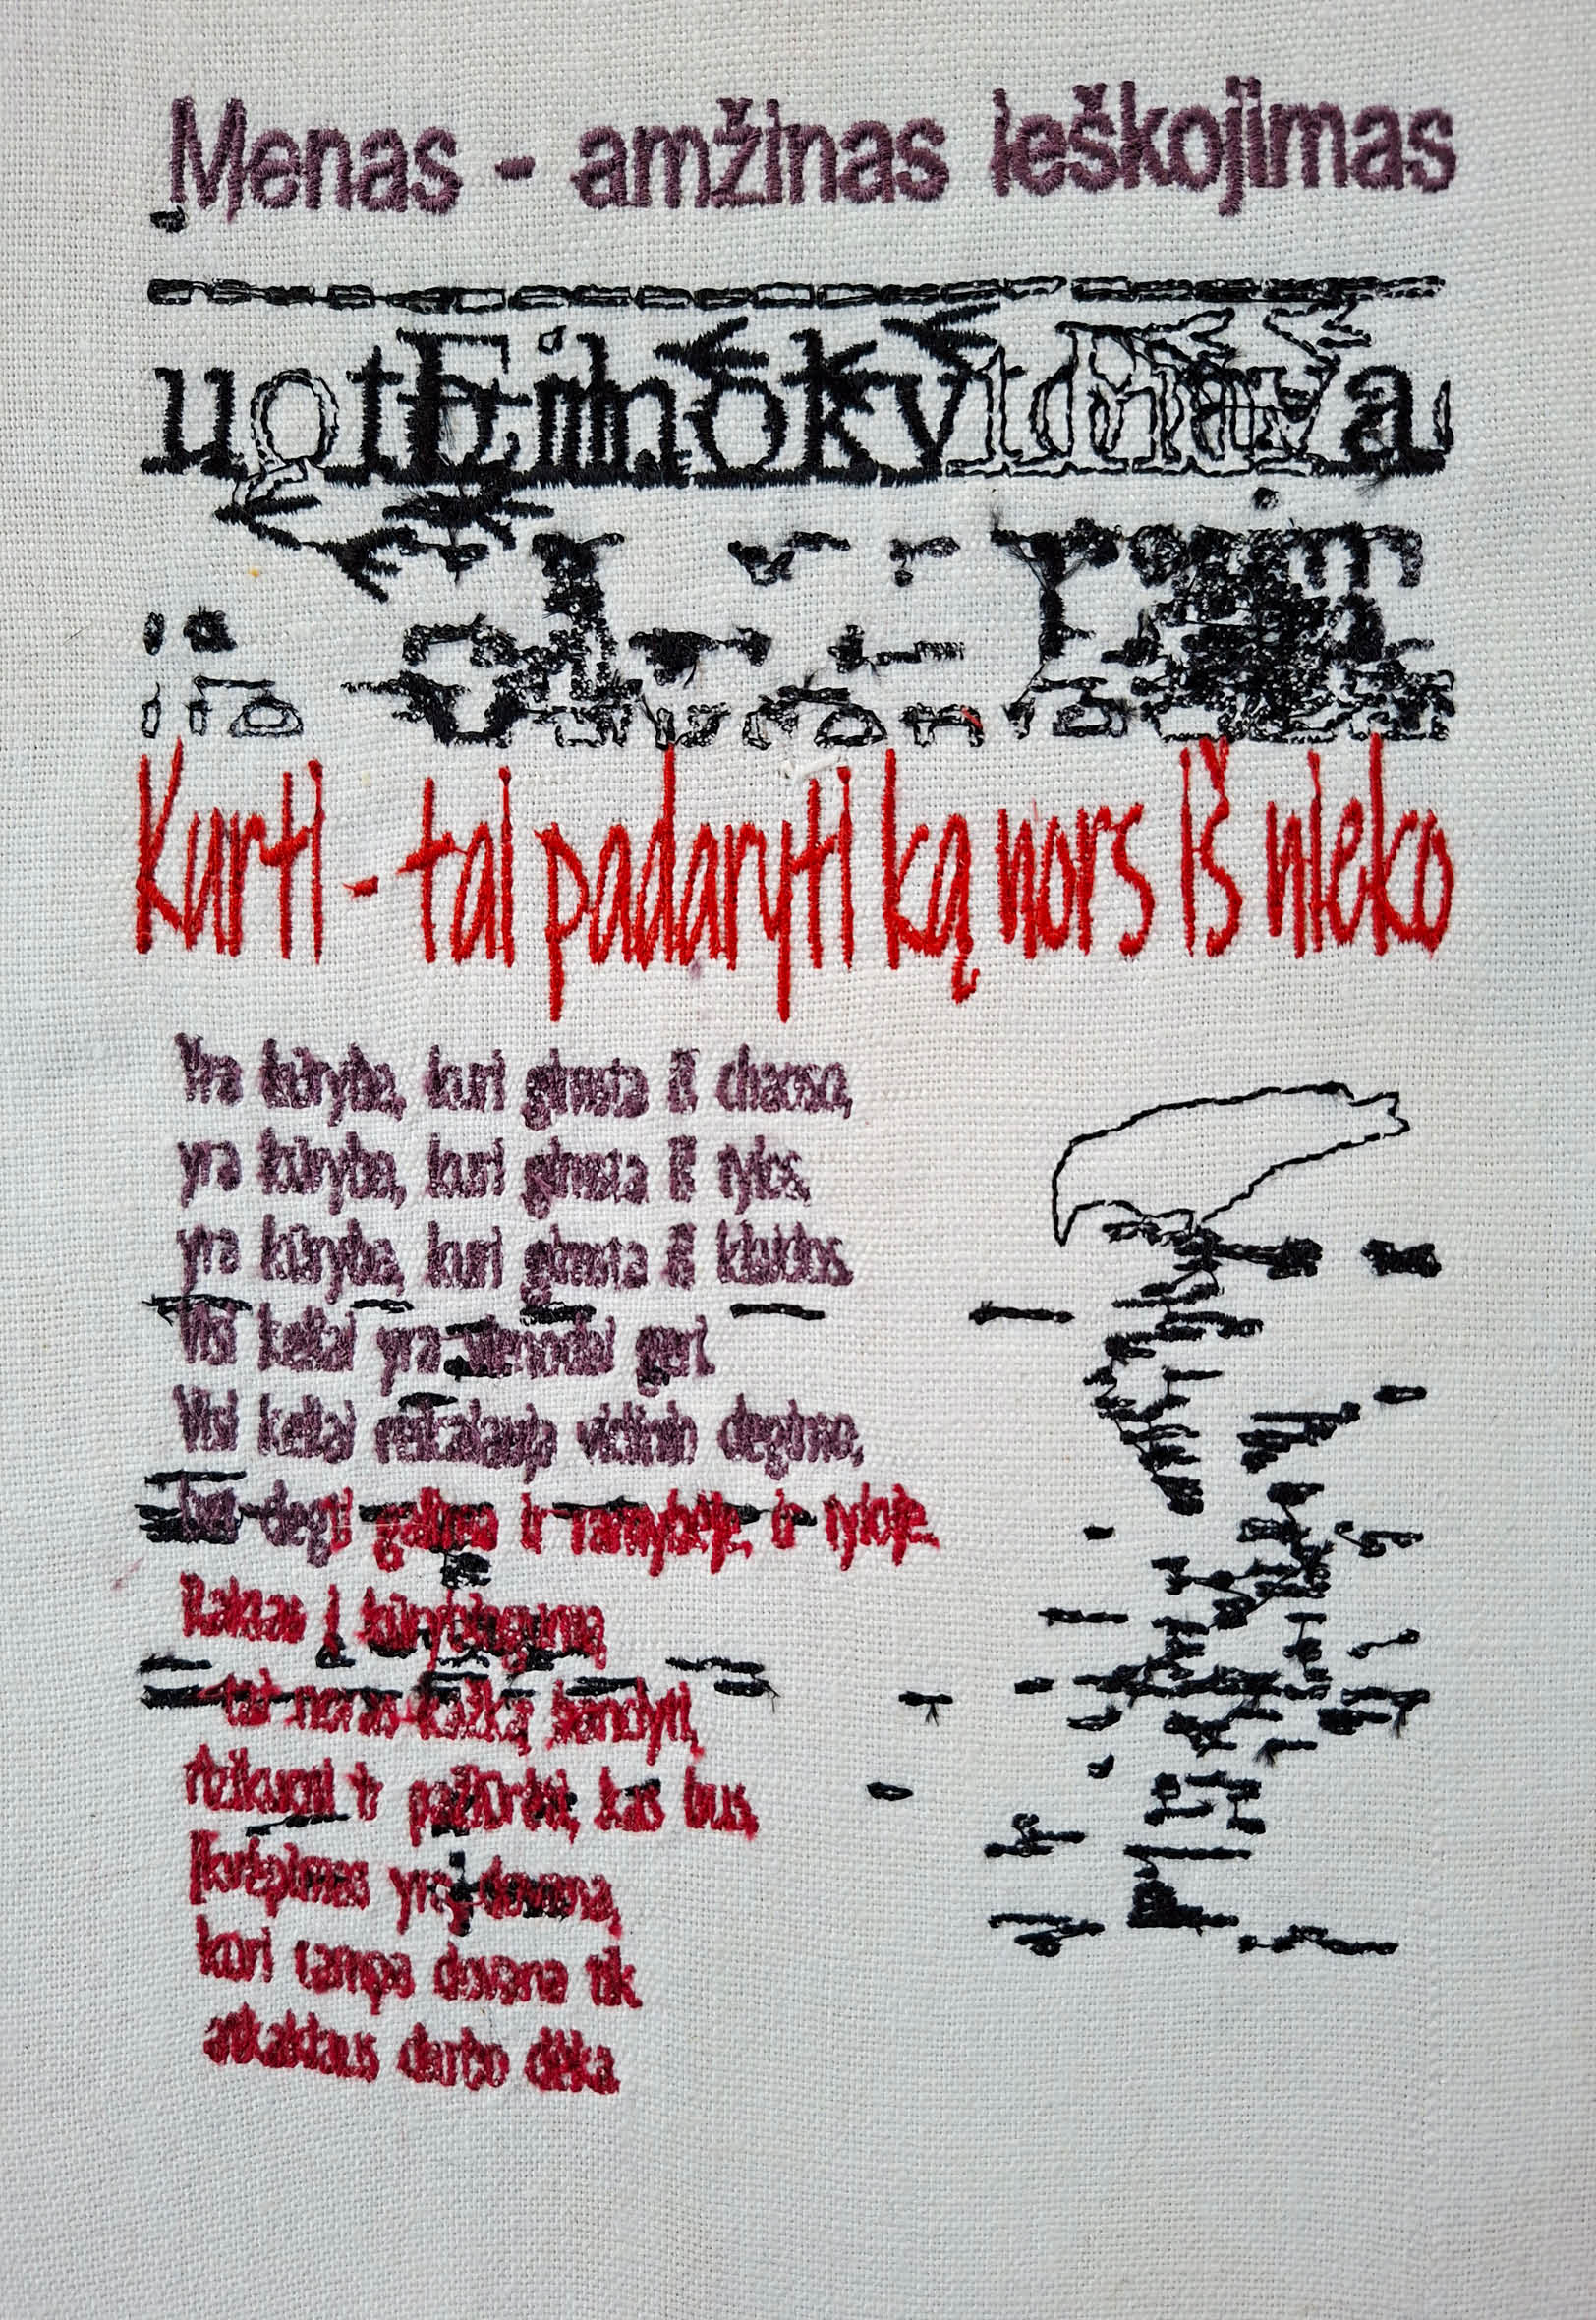 Menas - amžinas ieškojimas
Kurti - tai padaryti ką nors iš nieko
Yra kūryba, kuri gimsta iš chaoso,
yra kūryba, kuri gimsta iš tylos,
yra kūryba, kuri gimsta iš klaidos.
Visi keliai yra vienodai geri.
Visi keliai reikalauja vidinio degimo,
bet degti galima ir ramybėje, ir tyloje.
Raktas į kūrybingumą
- tai noras kažką bandyti,
rizikuoti ir pažiūrėti, kas bus.
Įkvėpimas yra dovana,
kuri tampa dovana tik
atkaklaus darbo dėka.